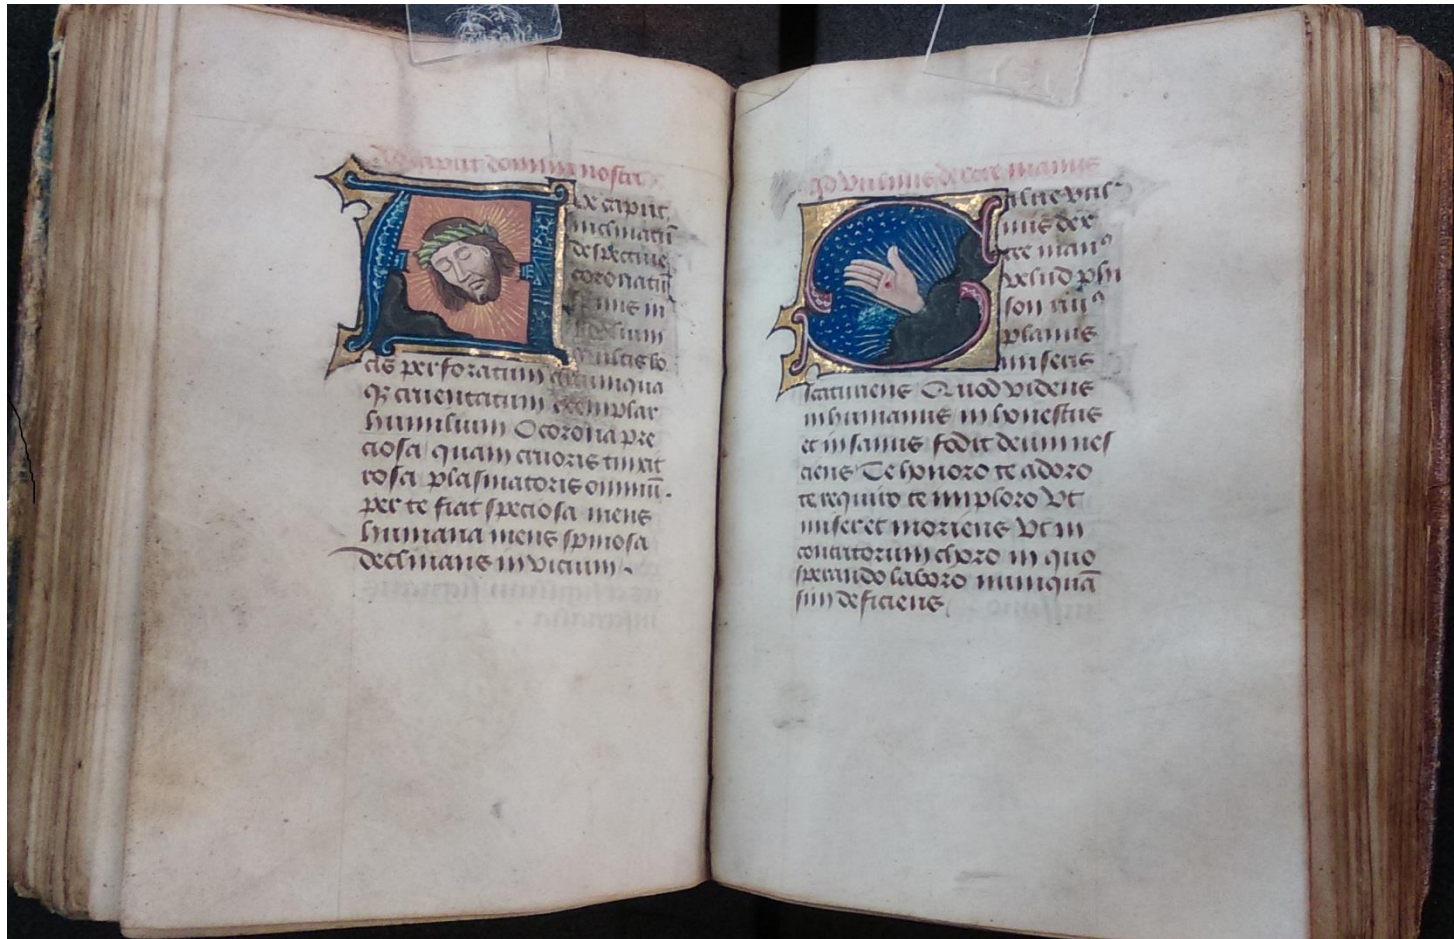 Ad caput domini nostri
ve caput
inclinatū
despective
coronatū
spinis in
multis lo
cis perforatum
qȝ cruentatum exemplar
humilium O corona pre
ciosa quam cruoris tinxit
rosa plasmatoris omniū.
per te fiat speciosa mens
humana mens spinosa
declinans in vicium.
Ad vulnus dextre manus
alue vul
nus dex
tre manꝰ
velud phi
son
planus
miseris
scaturiens Quod videns
inhumanus inhonestus
et insanus fodit deum nes
ciens Te honoro te adoro
te requiro te imploro Vt
miser et moriens Vt in
choro in quo
sperando laboro nunquā
sim deficiens